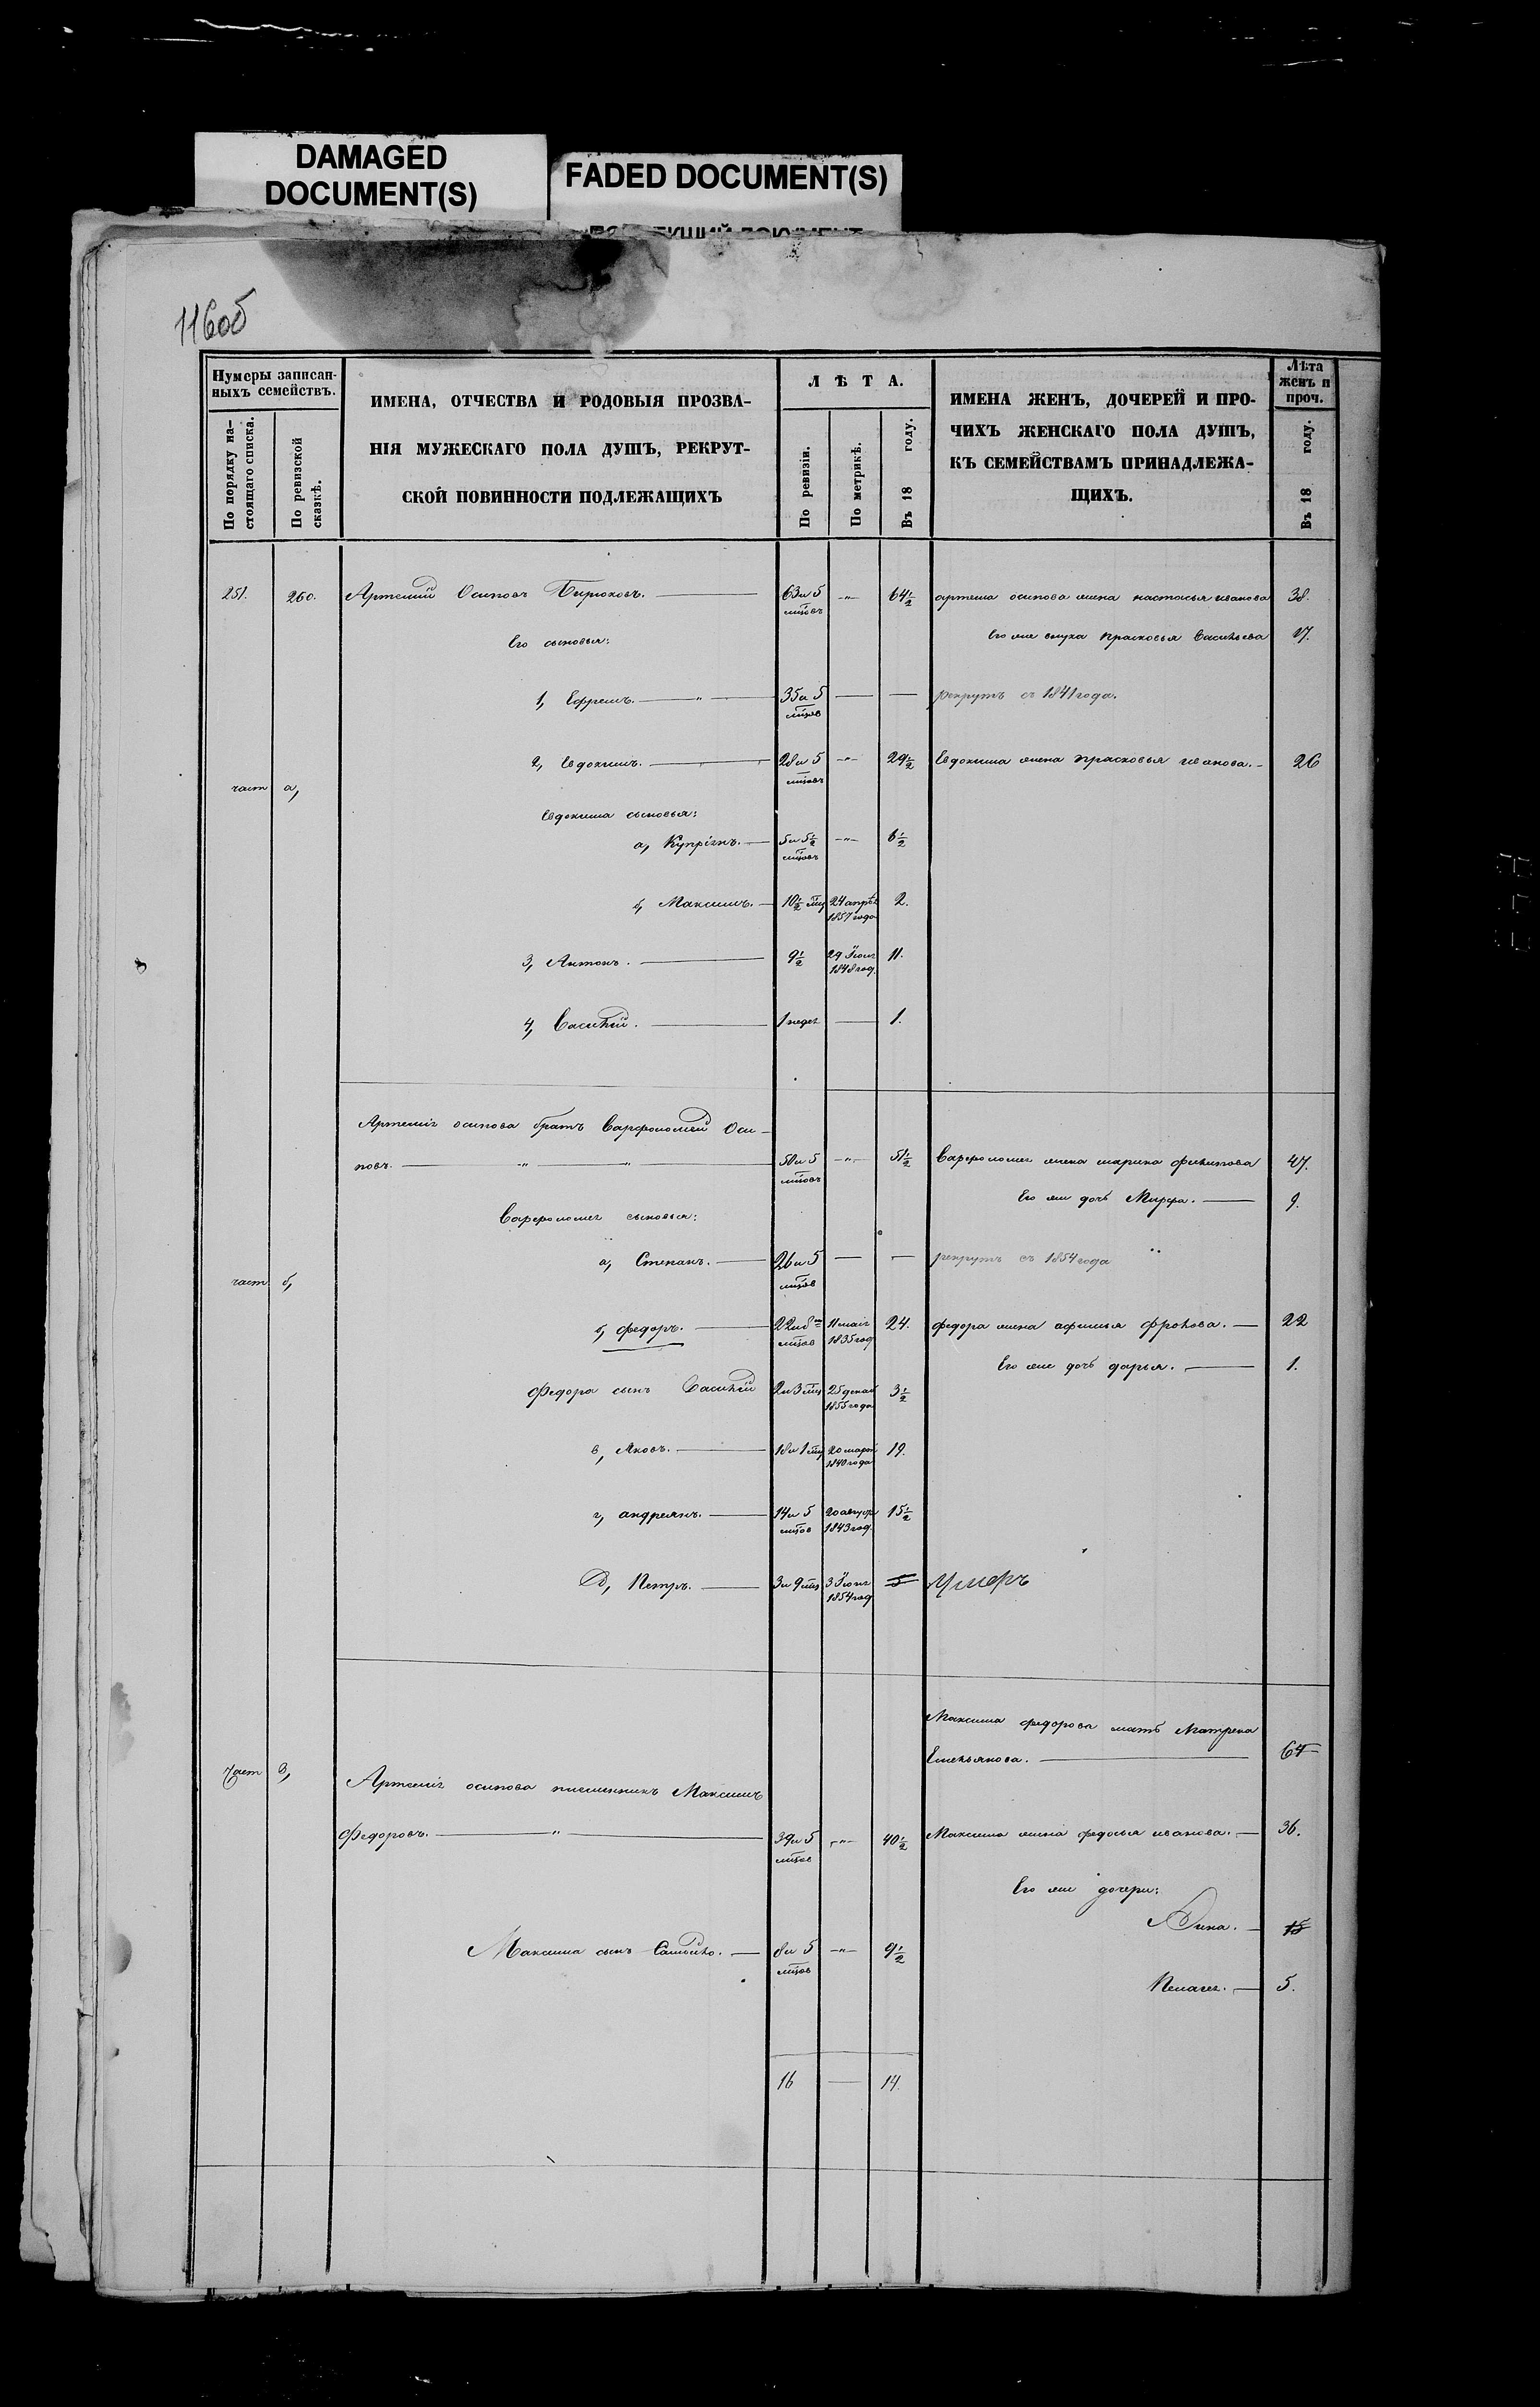 DAMAGED
DOCUMENT(S)
FADED DOCUMENT(S)
116об
Нумеры записан-
ныхъ семействъ.
По порядку на-
стоящаго списка.
По ревизской
сказкѣ.
ИМЕНА, ОТЧЕСТВА И РОДОВЫЯ ПРОЗВА-
НІЯ МУЖЕСКАГО ПОЛА ДУШЪ, РЕКРУТ-
СКОЙ ПОВИННОСТИ ПОДЛЕЖАЩИХЪ
ЛѢТА.
По ревизіи.
По метрикѣ.
Въ 18 году.
ИМЕНА ЖЕНЪ, ДОЧЕРЕЙ И ПРО-
ЧИХЪ ЖЕНСКАГО ПОЛА ДУШЪ,
КЪ СЕМЕЙСТВАМЪ ПРИНАДЛЕЖА-
ЩИХЪ.
Лѣта
женъ и
проч.
Въ 18 году.
251. 260. Артемій Осиповъ Бирюковъ. 63 и 5 мцовъ -"- 64½ артема осипова жена настасья иванова 38.
Его сыновья: Его же внука прасковья Васильева 17.
1, Ефремъ. -"- 35 и 5 мцов — — рекрутъ съ 1841 года.
2, Евдокимъ. 28 и 5 мцовъ -"- 29½ Евдокима жена прасковья иванова. 26
част а,
Евдокима сыновья:
а, Купріянъ. 5 и 5½ мцовъ -"- 6½
б, Максимъ. 10½ мц 24 апрѣ 1857 года 2.
3, Антонъ. 9½ 29 Іюня 1848 год. 11.
4, Василій. 1 недел — 1.
Артемія осипова братъ Варфоломей Оси-
повъ. -"- -"- 50 и 5 мцовъ -"- 51½ Варфоломея жена марина филипова 47.
Его же дочь Марфа. 9.
Варфоломея сыновья:
а, Степанъ. 26 и 5 мцов — — рекрутъ съ 1854 года "
част б,
б, федоръ. 22 и 8 мцов 11 маія 1835 год 24. федора жена афимья фролова. 22
Его же дочь дарья. 1.
Федора сынъ Василій 2 и 3 мц 25 декаб 1855 года 3½
в, Яковъ. 18 и 1 мц 20 марта 1840 года 19.
г, андреянъ. 14 и 5 мцов 20 август 1843 год. 15½
д, Петръ. 3 и 9 мц 3 Іюня 1854 год 5 Умеръ
Максима федорова мать Матрена
Емельянова. 64
Част в, Артемія осипова племянникъ Максимъ
Федоровъ. -"- 39 и 5 мцов -"- 40½ Максима жена федосья иванова. 36.
Его же дочери:
15
Максима сынъ Самойло. 8 и 5 мцов -"- 9½
Пелагея. 5.
16 — 14.